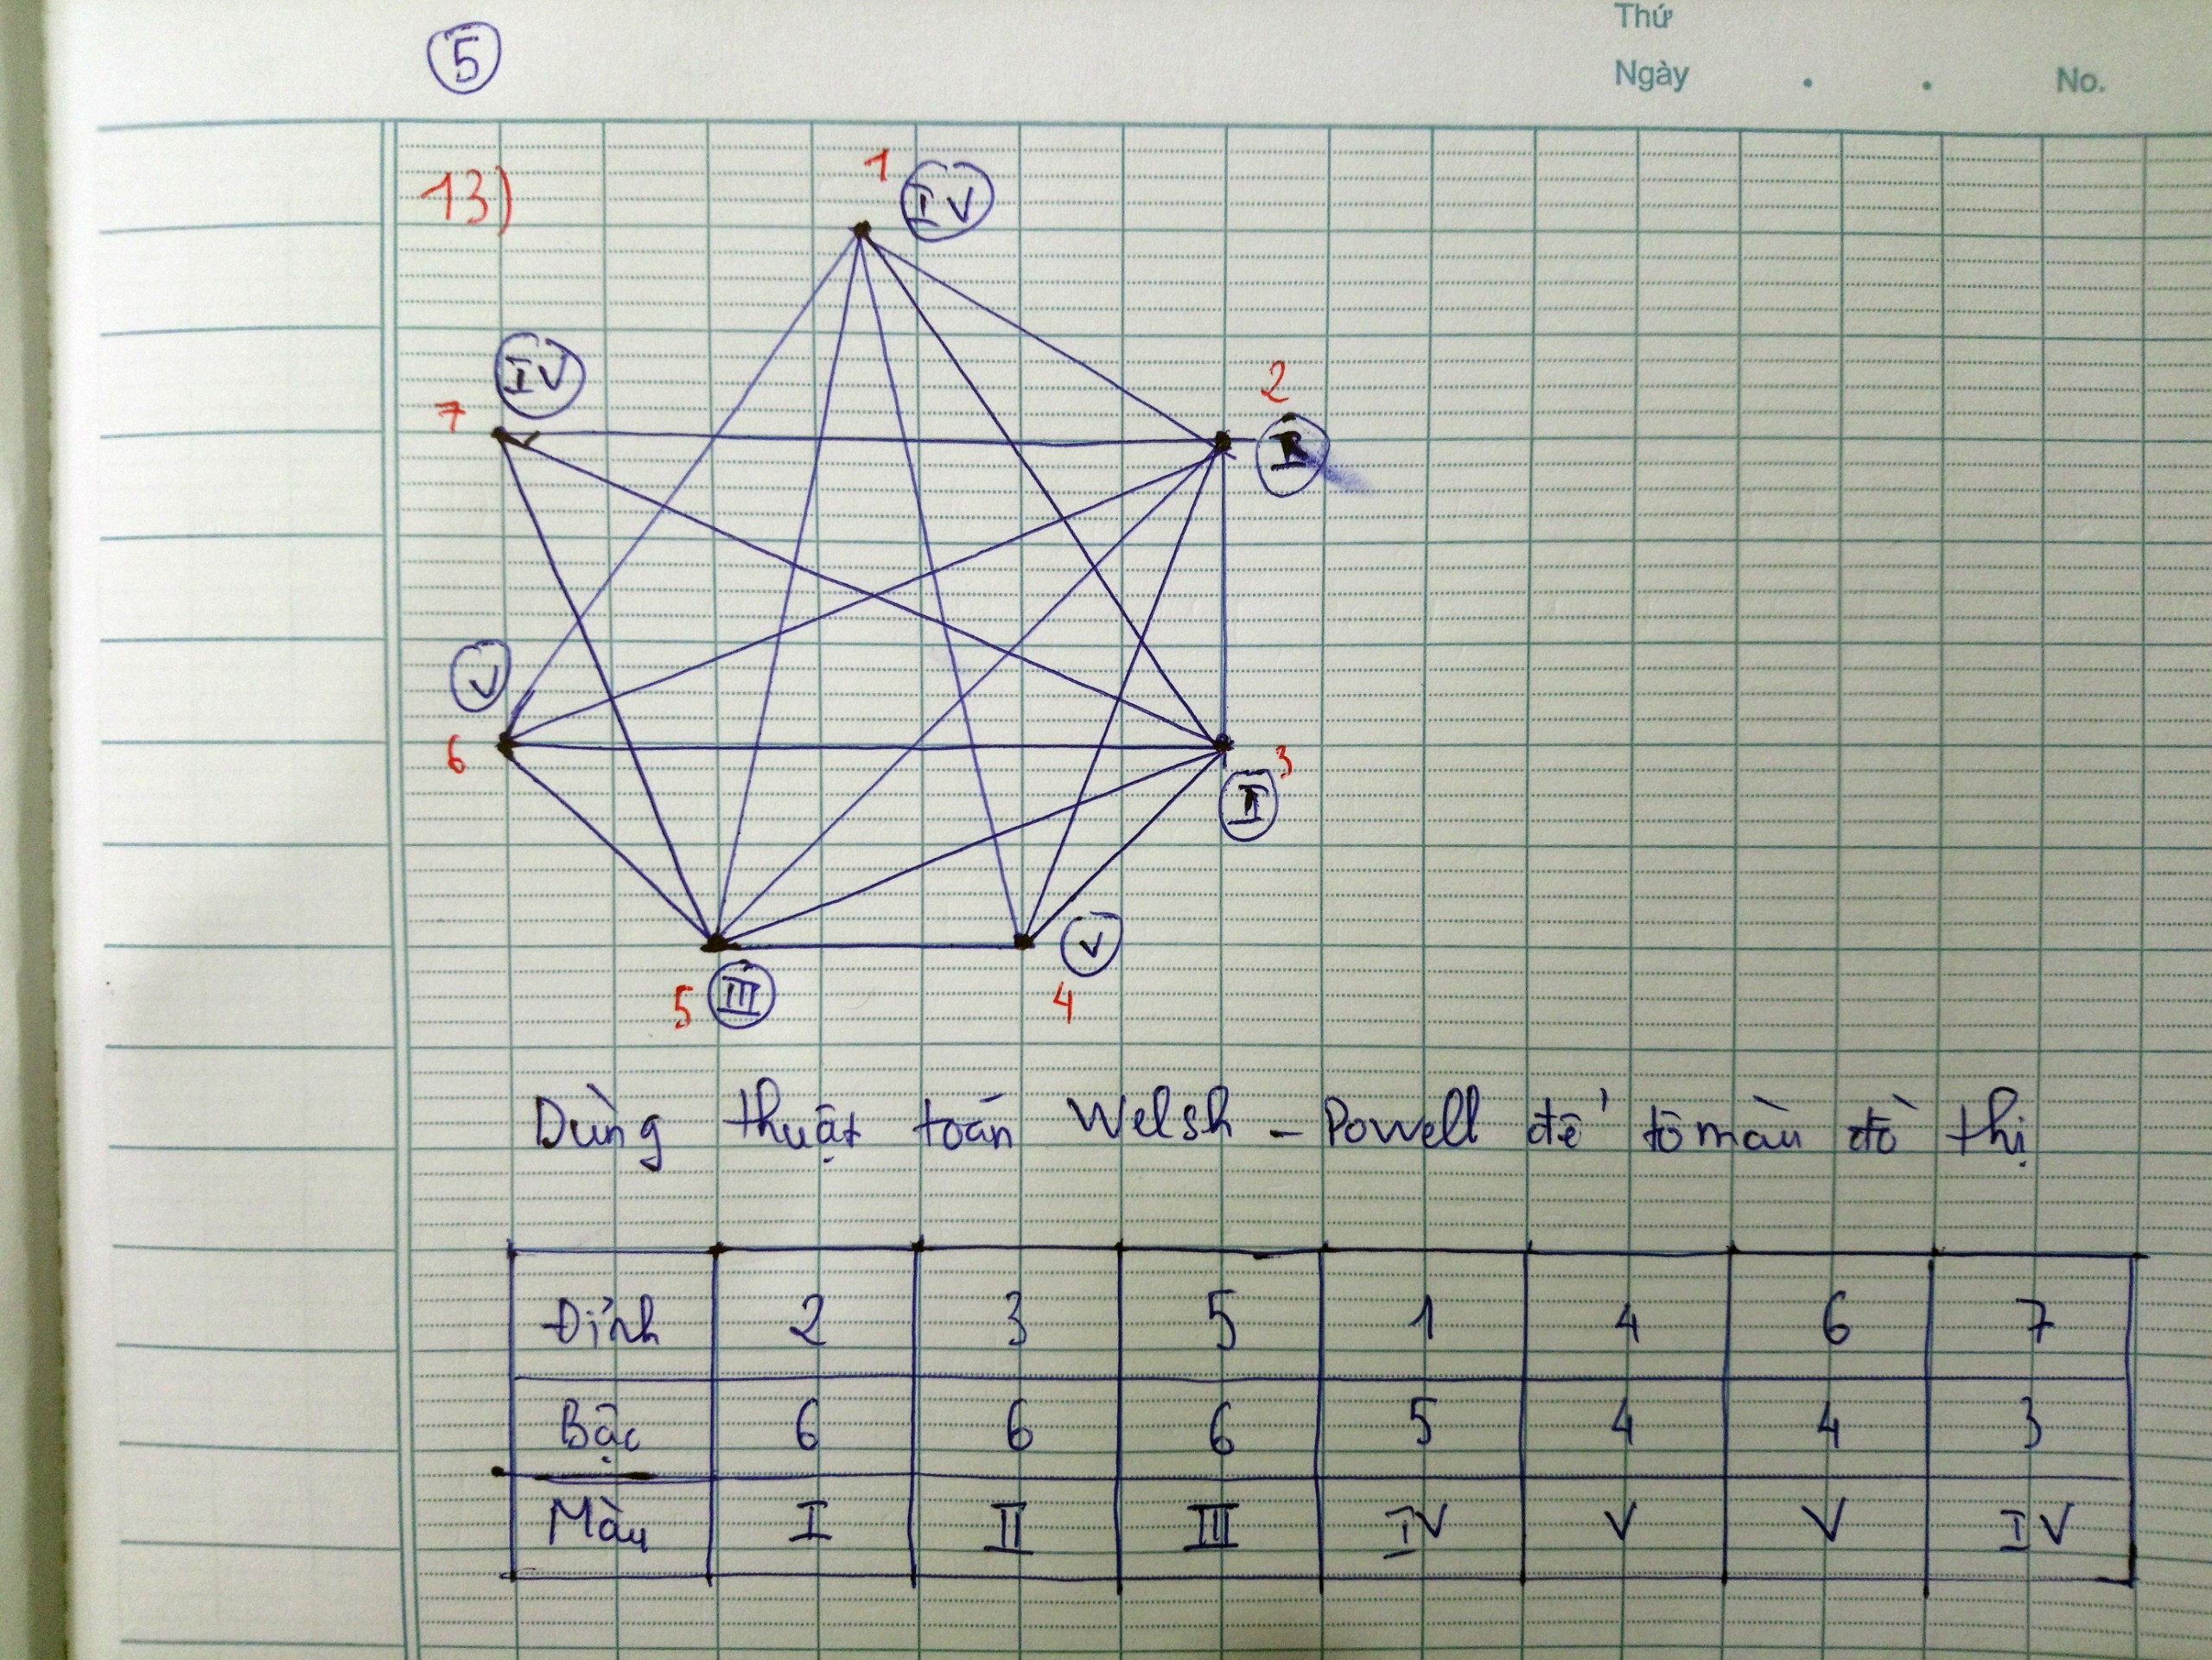 5
Thứ
Ngày . . No.
13)
1 IV
IV
7
2
I
V
6
3
I
V
5 III
4
Dùng thuật toán Welsh - Powell để tô màu đồ thị
Đỉnh 2 3 5 1 4 6 7
Bậc 6 6 6 5 4 4 3
Màu I II III IV V V IV